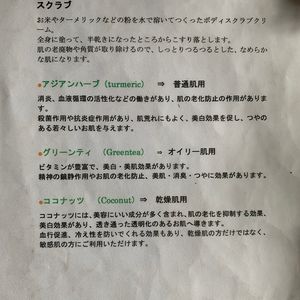 スクラブ
お米やターメリックなどの粉を水で溶いてつくったボディスクラブクリ
ーム。
全身に塗って、半乾きになったところからこすり落とします。
肌の老廃物や角質が取り除けるので、しっとりつるつるとした、なめらか
な肌になります。
●アジアンハーブ（turmeric） ⇒ 普通肌用
消炎、血液循環の活性化などの働きがあり、肌の老化防止の作用がありま
す。
殺菌作用や抗炎症作用があり、肌荒れにもよく、美白効果を促し、つやの
ある若々しいお肌を与えます。
●グリーンティ （Greentea） ⇒ オイリー肌用
ビタミンが豊富で、美白・美肌効果があります。
精神の鎮静作用やお肌の老化防止、美肌・消臭・つやに効果があります。
●ココナッツ （Coconut） ⇒ 乾燥肌用
ココナッツには、美容にいい成分が多く含まれ、肌の老化を抑制する効果、
美白効果があり、透き通った透明化のあるお肌へ導きます。
血行促進、冷え性を防いでくれる効果もあり、乾燥肌の方だけではなく、
敏感肌の方にご利用いただけます。